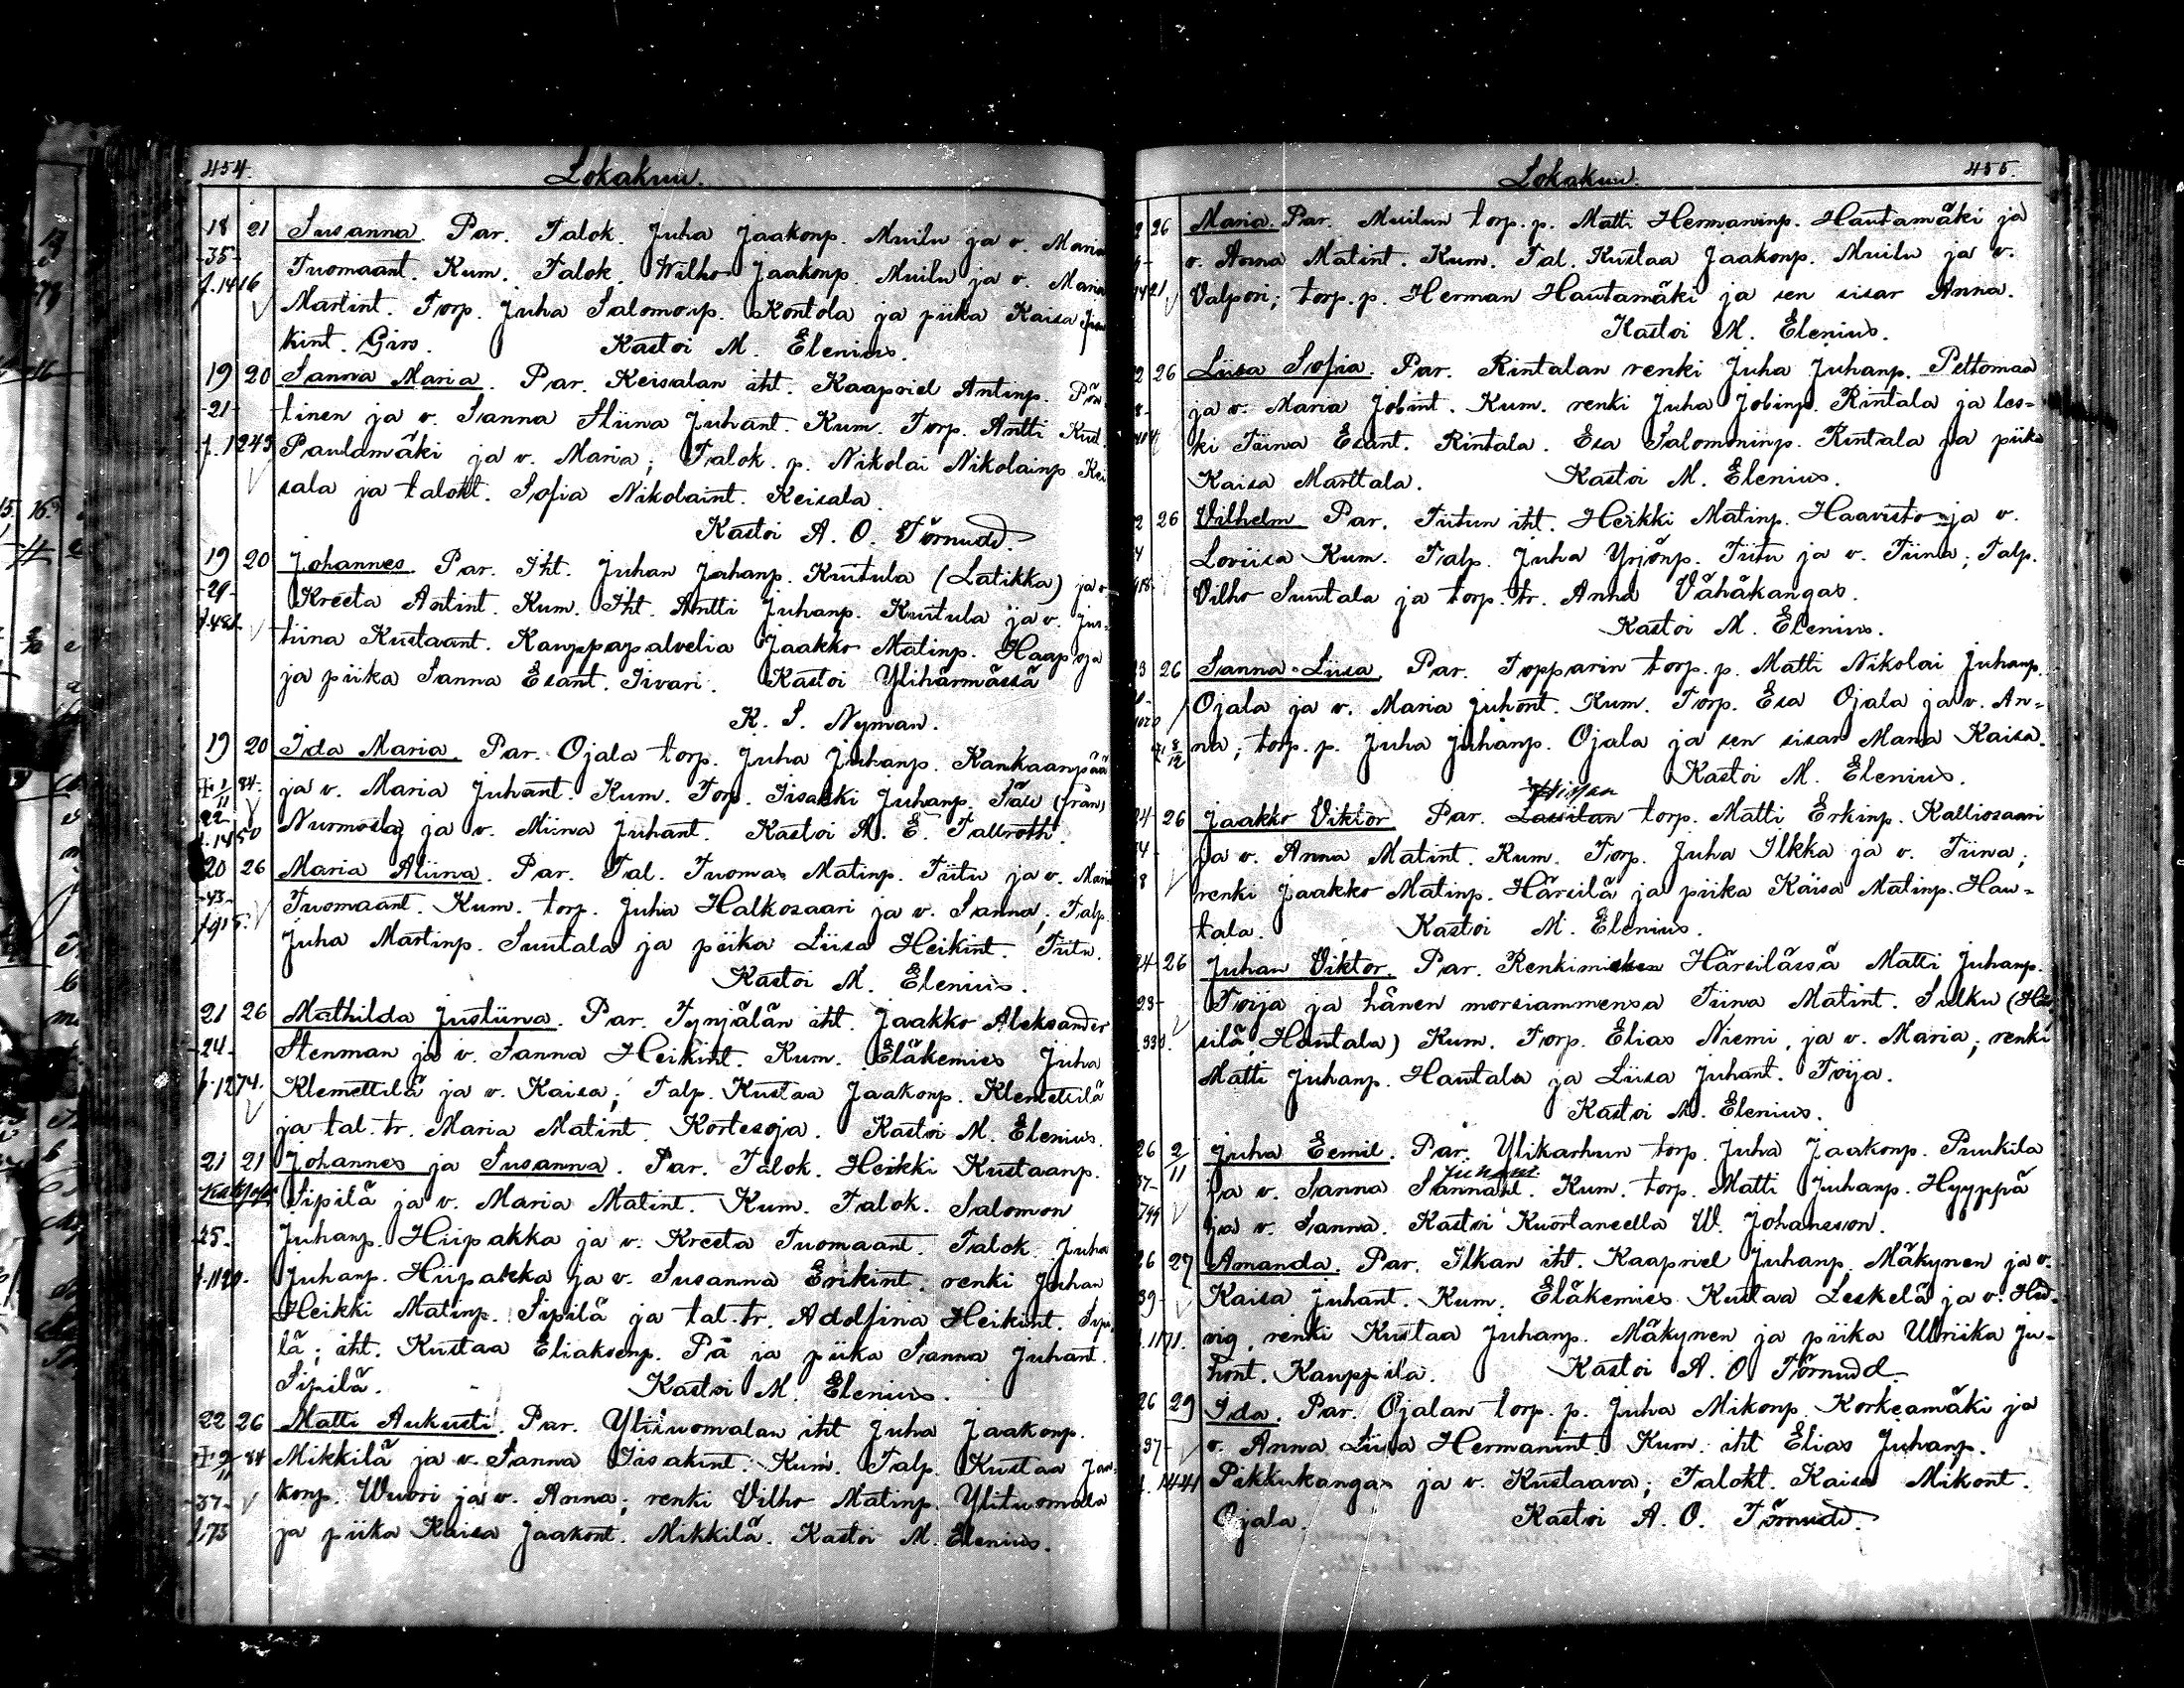 454.
Lokakuu.
18 21 Susanna. Par. Talok. Juha Jaakonp. Muilu ja v. Maria
-35- Tuomaant. Kum. Talok. Wilho Jaakonp. Muilu ja v. Maria
f. 1416 Martint. Torp. Juha Salomonp. Kontola ja piika Kaisa
kint. Giros. Kastoi M. Elenius.
19 20 Sanna Maria. Par. Keisalan iht. Kaapriel Antinp. Pön-
-21- tinen ja v. Sanna Stiina Juhant. Kum. Torp. Antti Kust.
f. 1243 Paulamäki ja v. Maria; Talok. p. Nikolai Nikolainp. Kei
sala ja talokt. Sofia Nikolaint. Keisala.
Kastoi A. O. Törnudd.
19 20 Johannes. Par. Iht. Juhan Juhanp. Kuutula (Latikka) ja v.
-29- Kreeta Antint. Kum. Iht. Antti Juhanp. Kuutula ja v. Jus-
tiina Kustaant. Kauppapalvelia Jaakko Matinp. Haapoja
ja piika Sanna Esant. Iivari. Kastoi Ylihärmässä
K. S. Nyman.
19 20 Ida Maria. Par. Ojala torp. Juha Juhanp. Kankaanpää
84. ja v. Maria Juhant. Kum. Torp. Iisakki Juhanp. (från)
22 Nurmosta) ja v. Miina Juhant. Kastoi A. E. Tallroth.
f. 1450
20 26 Maria Aliina. Par. Tal. Tuomas Matinp. Tiitu ja v. Maria
-43- Tuomaant. Kum. torp. Juha Halkosaari ja v. Sanna; Talp.
f. 915. Juha Martinp. Suutala ja piika Liisa Heikint. Tiitu.
Kastoi M. Elenius.
21 26 Mathilda Justiina. Par. Tynjälän iht. Jaakko Aleksander
-24- Stenman ja v. Sanna Heikint. Kum. Eläkemies Juha
f. 1274. Klemettilä ja v. Kaisa; Talp. Kustaa Jaakonp. Klemettilä
ja tal. tr. Maria Matint. Kortesoja. Kastoi M. Elenius.
21 21 Johannes ja Susanna. Par. Talok. Heikki Kustaanp.
Sipilä ja v. Maria Matint. Kum. Talok. Salomon
-25- Juhanp. Hiipakka ja v. Kreeta Tuomaant. Talok. Juha
Juhanp. Hiipakka ja v. Susanna Erikint. renki Juhan
Heikki Matinp. Sipilä ja tal. tr. Adolfina Heikint. Sipi-
lä; iht. Kustaa Eliaksenp. Pä ja piika Sanna Juhant.
Sipilä. Kastoi M. Elenius.
22 26 Matti Aukusti. Par. Ylituomalan iht Juha Jaakonp.
84 Mikkilä ja v. Sanna Iisakint. Kum. Talp. Kustaa Jaa-
-37- konp. Wuori ja v. Anna; renki Vilho Matinp. Ylituomala
f. 73 ja piika Kaisa Jaakont. Mikkilä. Kastoi M. Elenius.
Lokakuu.
455.
26 Maria. Par. Muilun torp. p. Matti Hermaninp. Hautamäki ja
v. Anna Matint. Kum. Tal. Kustaa Jaakonp. Muilu ja v.
Valpori; torp. p. Herman Hautamäki ja sen sisar Anna.
Kastoi M. Elenius.
26 Liisa Sofia. Par. Rintalan renki Juha Juhanp. Peltomaa
ja v. Maria Jobint. Kum. renki Juha Jobinp. Rintala ja les-
ki Tiina Esant. Rintala. Esa Salomoninp. Rintala ja piika
Kaisa Marttala. Kastoi M. Elenius.
26 Vilhelm. Par. Tiitun iht. Heikki Matinp. Haavisto ja v.
Loviisa Kum. Talp. Juha Yrjönp. Tiitu ja v. Tiina; Talp.
Vilho Suutala ja torp. tr. Anna Vähäkangas.
Kastoi M. Elenius.
26 Sanna-Liisa. Par. Topparin torp. p. Matti Nikolai Juhanp.
Ojala ja v. Maria Juhont. Kum. Torp. Esa Ojala ja v. An-
na; torp. p. Juha Juhanp. Ojala ja sen sisar Maria Kaisa.
Kastoi M. Elenius.
24 26 Jaakko Viktor. Par. Lassilan torp. Matti Erkinp. Kalliosaari
ja v. Anna Matint. Kum. Torp. Juha Ilkka ja v. Tiina;
renki Jaakko Matinp. Härsilä ja piika Kaisa Matinp. Hau-
tala. Kastoi M. Elenius.
24 26 Juhan Viktor. Par. Renkimies Härsilässä Matti Juhanp.
Toija ja hänen morsiammensa Tiina Matint. Sulku (Här
silä, Hautala) Kum. Torp. Elias Niemi, ja v. Maria; renki
Matti Juhanp. Hautala ja Liisa Juhant. Toija.
Kastoi M. Elenius.
26 2/11 Juha Eemil. Par. Ylikarhun torp. Juha Jaakonp. Puukila
Juhant.
ja v. Sanna Sannant. Kum. torp. Matti Juhanp. Hyyppä
ja v. Sanna. Kastoi Kuortaneella W. Johansson.
26 27 Amanda. Par. Ilkan iht. Kaapriel Juhanp. Mäkynen ja v.
Kaisa Juhant. Kum. Eläkemies Kustaa Leskelä ja v. Hed-
vig, renki Kustaa Juhanp. Mäkynen ja piika Ulriika Ju-
hont. Kauppila. Kastoi A. O Törnudd
26 29 Ida. Par. Ojalan torp. p. Juha Mikonp. Korkeamäki ja
-37- v. Anna Liisa Hermanint. Kum. iht Elias Juhanp.
1441 Pikkukangas ja v. Kustaava; Talokt. Kaisa Mikont.
Ojala. Kastoi A. O. Törnudd.